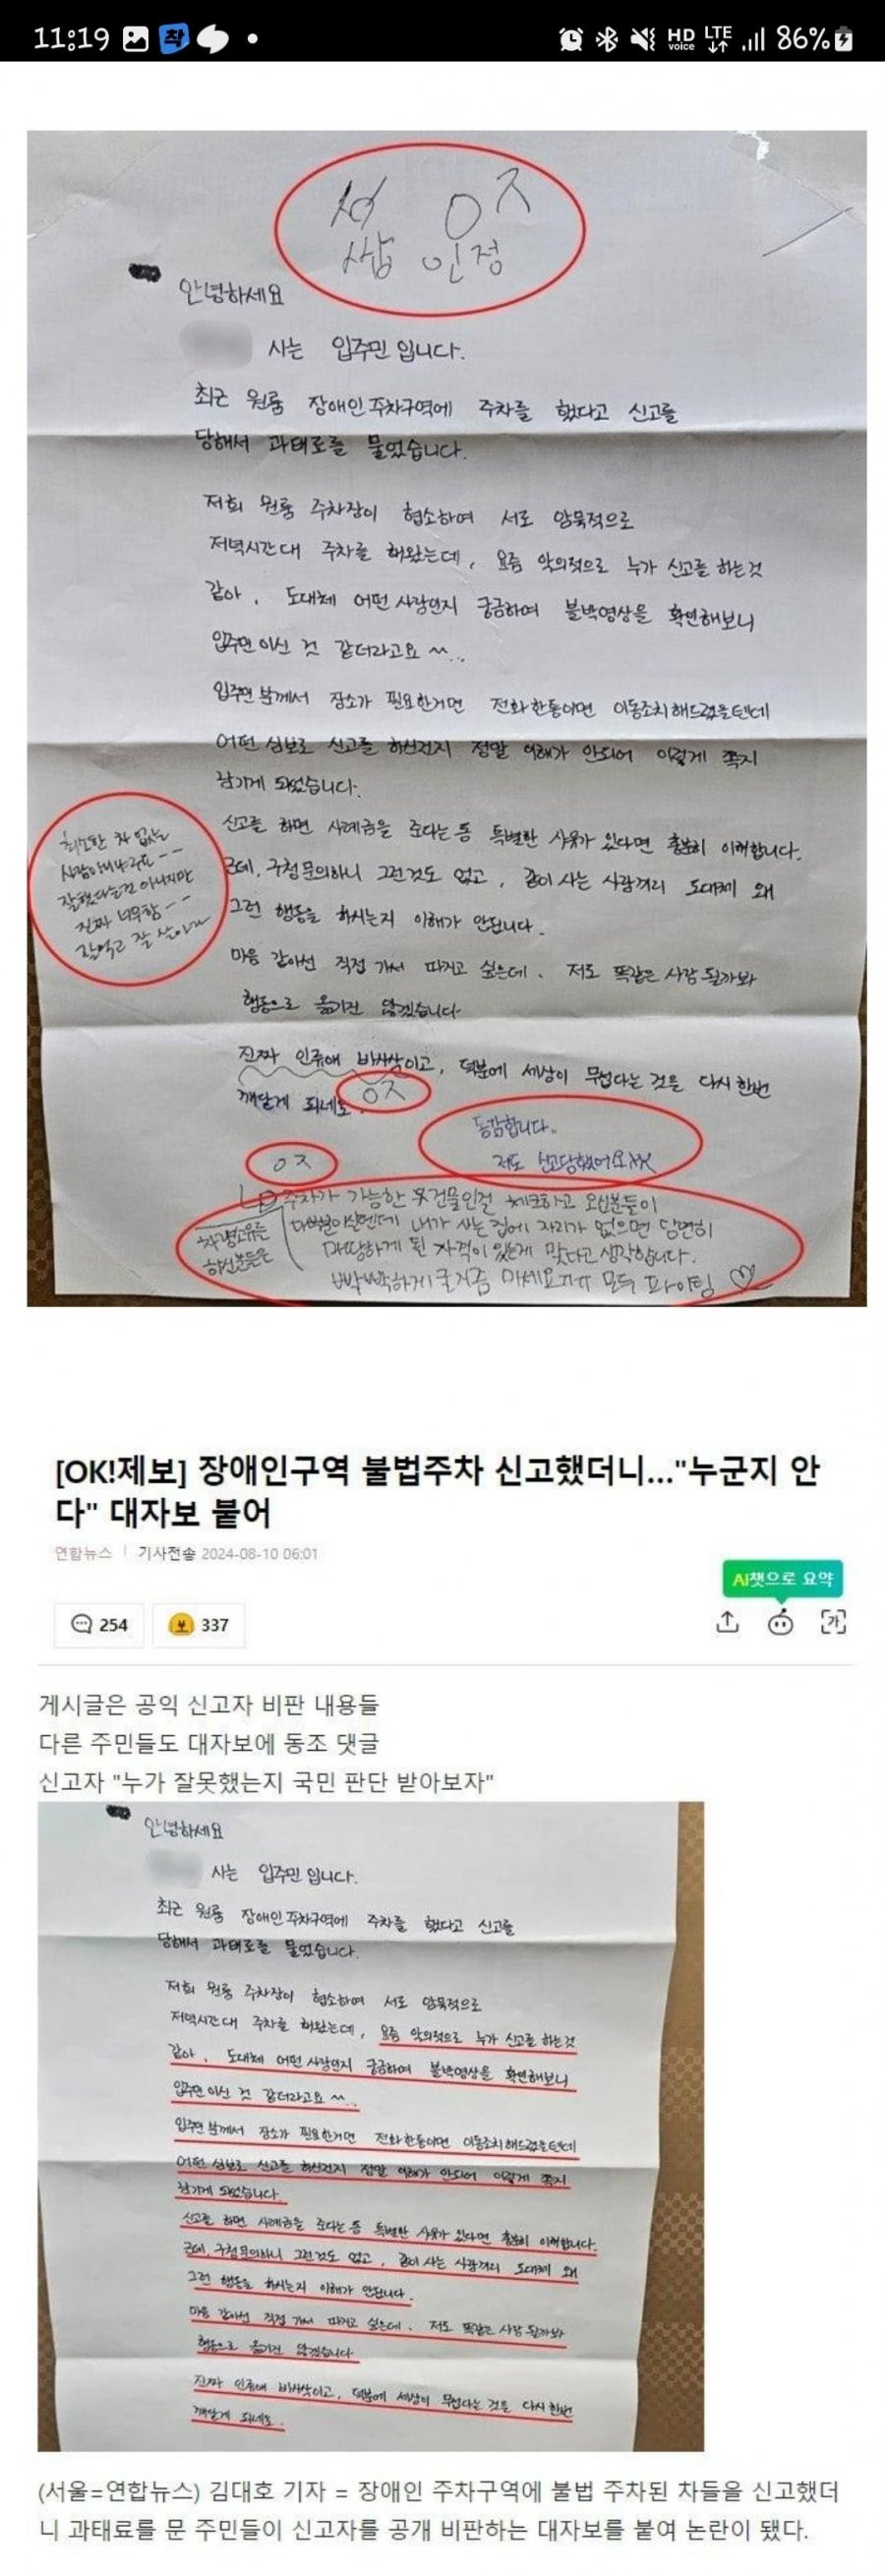 11:19
HD voice
LTE
86%
ㅇㅈ
쌉 인정
안녕하세요
사는 입주민 입니다.
최근 원룸 장애인주차구역에 주차를 했다고 신고를
당해서 과태료를 물었습니다.
저희 원룸 주차장이 협소하여 서로 암묵적으로
저녁시간대 주차를 해왔는데, 요즘 악의적으로 누가 신고를 하는것
같아, 도대체 어떤 사람인지 궁금하여 블박영상을 확인해보니
입주민이신 것 같더라고요 ^^...
입주민 분께서 장소가 필요한거면 전화한통이면 이동조치해드렸을텐데
어떤 심보로 신고를 하신건지 정말 이해가 안되어 이렇게 쪽지
남기게 되었습니다.
신고를 하면 사례금을 준다는 등 특별한 사유가 있다면 충분히 이해합니다.
근데, 구청문의하니 그런것도 없고, 같이 사는 사람끼리 도대체 왜
그런 행동을 하시는지 이해가 안됩니다.
마음 같아선 직접 가서 따지고 싶은데. 저도 똑같은 사람 될까봐
행동으로 옮기진 않겠습니다
진짜 인류애 바사삭이고, 덕분에 세상이 무섭다는 것을 다시 한번
깨닫게 되네요.
ㅇㅈ
최소한 차 없는
잘했다는건 아니지만
진짜 너무함--
동감합니다.
저도 신고당했어요
ㅇㅈ
주차가 가능한 못건물인걸 체크하고 오신분들이
차량소유를
하신분들은
다반분이실텐데 내가 사는 집에 자리가 없으면 당연히
마땅하게 될 자격이 있는게 맞다고 생각합니다.
빡빡하게 굴거즘 마세요ㅠㅠ 모두 파이팅 ♡
[OK!제보] 장애인구역 불법주차 신고했더니..."누군지 안
다" 대자보 붙어
연합뉴스 | 기사전송 2024-08-10 06:01
AI챗으로 요약
254
337
가
게시글은 공익 신고자 비판 내용들
다른 주민들도 대자보에 동조 댓글
신고자 "누가 잘못했는지 국민 판단 받아보자"
안녕하세요
사는 입주민 입니다.
최근 원룸 장애인주차구역에 주차를 했다고 신고를
당해서 과태료를 물었습니다.
저희 원룸 주차장이 협소하여 서로 암묵적으로
저녁시간대 주차를 해왔는데, 요즘 악의적으로 누가 신고를 하는것
같아, 도대체 어떤 사람인지 궁금하여 블박영상을 확인해보니
입주민이신 것 같더라고요 ^^...
입주민 분께서 장소가 필요한거면 전화한통이면 이동조치해드렸을텐데
어떤 심보로 신고를 하신건지 정말 이해가 안되어 이렇게 쪽지
남기게 되었습니다.
신고를 하면 사례금을 준다는 등 특별한 사유가 있다면 충분히 이해합니다.
근데, 구청문의하니 그런것도 없고, 같이 사는 사람끼리 도대체 왜
그런 행동을 하시는지 이해가 안됩니다.
마음 같아선 직접 가서 따지고 싶은데. 저도 똑같은 사람 될까봐
행동으로 옮기진 않겠습니다
진짜 인류애 바사삭이고, 덕분에 세상이 무섭다는 것을 다시 한번
깨닫게 되네요.
(서울=연합뉴스) 김대호 기자 = 장애인 주차구역에 불법 주차된 차들을 신고했더
니 과태료를 문 주민들이 신고자를 공개 비판하는 대자보를 붙여 논란이 됐다.